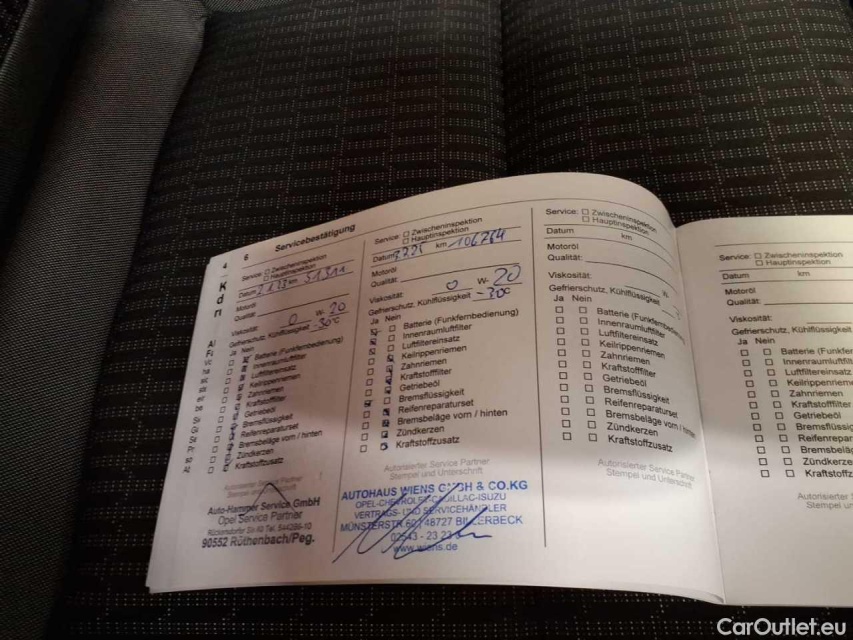 4
6
Servicebestätigung
K
d
n
Service: ☐ Zwischeninspektion
☐ Hauptinspektion
Datum km 51311
Motoröl
Qualität:
Viskosität: 0 W- 20
Gefrierschutz, Kühlflüssigkeit -30°C
Ja Nein
Batterie (Funkfernbedienung)
Innenraumluftfilter
Luftfiltereinsatz
Keilrippenriemen
Zahnriemen
Kraftstofffilter
Getriebeöl
Bremsflüssigkeit
Reifenreparaturset
Bremsbeläge vorn / hinten
Zündkerzen
Kraftstoffzusatz
Autorisierter Service Partner
Stempel und Unterschrift
Auto-Hammer Service GmbH
Opel Service Partner
90552 Röthenbach/Peg.
Service: ☐ Zwischeninspektion
☐ Hauptinspektion
Datum km 106784
Motoröl
Qualität:
Viskosität: 0 W- 20
Gefrierschutz, Kühlflüssigkeit -70c
Ja Nein
Batterie (Funkfernbedienung)
Innenraumluftfilter
Luftfiltereinsatz
Keilrippenriemen
Zahnriemen
Kraftstofffilter
Getriebeöl
Bremsflüssigkeit
Reifenreparaturset
Bremsbeläge vorn / hinten
Zündkerzen
Kraftstoffzusatz
Autorisierter Service Partner
Stempel und Unterschrift
AUTOHAUS WIENS GMBH & CO.KG
OPEL-CHEVROLET-CADILLAC-ISUZU
VERTRAGS- UND SERVICEHÄNDLER
MÜNSTERSTR. 48727 BILLERBECK
02543 - 23 23
www.wiens.de
Service: ☐ Zwischeninspektion
☐ Hauptinspektion
Datum km
Motoröl
Qualität:
Viskosität:
Gefrierschutz, Kühlflüssigkeit
Ja Nein
Batterie (Funkfernbedienung)
Innenraumluftfilter
Luftfiltereinsatz
Keilrippenriemen
Zahnriemen
Kraftstofffilter
Getriebeöl
Bremsflüssigkeit
Reifenreparaturset
Bremsbeläge vorn / hinten
Zündkerzen
Kraftstoffzusatz
Autorisierter Service Partner
Stempel und Unterschrift
Service: ☐ Zwischeninspektion
☐ Hauptinspektion
Datum km
Motoröl
Qualität:
Viskosität:
Gefrierschutz, Kühlflüssigkeit
Ja Nein
Batterie (Funkfer
Innenraumluftfilt
Luftfiltereinsatz
Keilrippenriem
Zahnriemen
Kraftstofffilter
Getriebeöl
Bremsflüssig
Reifenrepar
Bremsbelä
Zündkerze
Kraftstoffz
Autorisierter
Stempel un
CarOutlet.eu